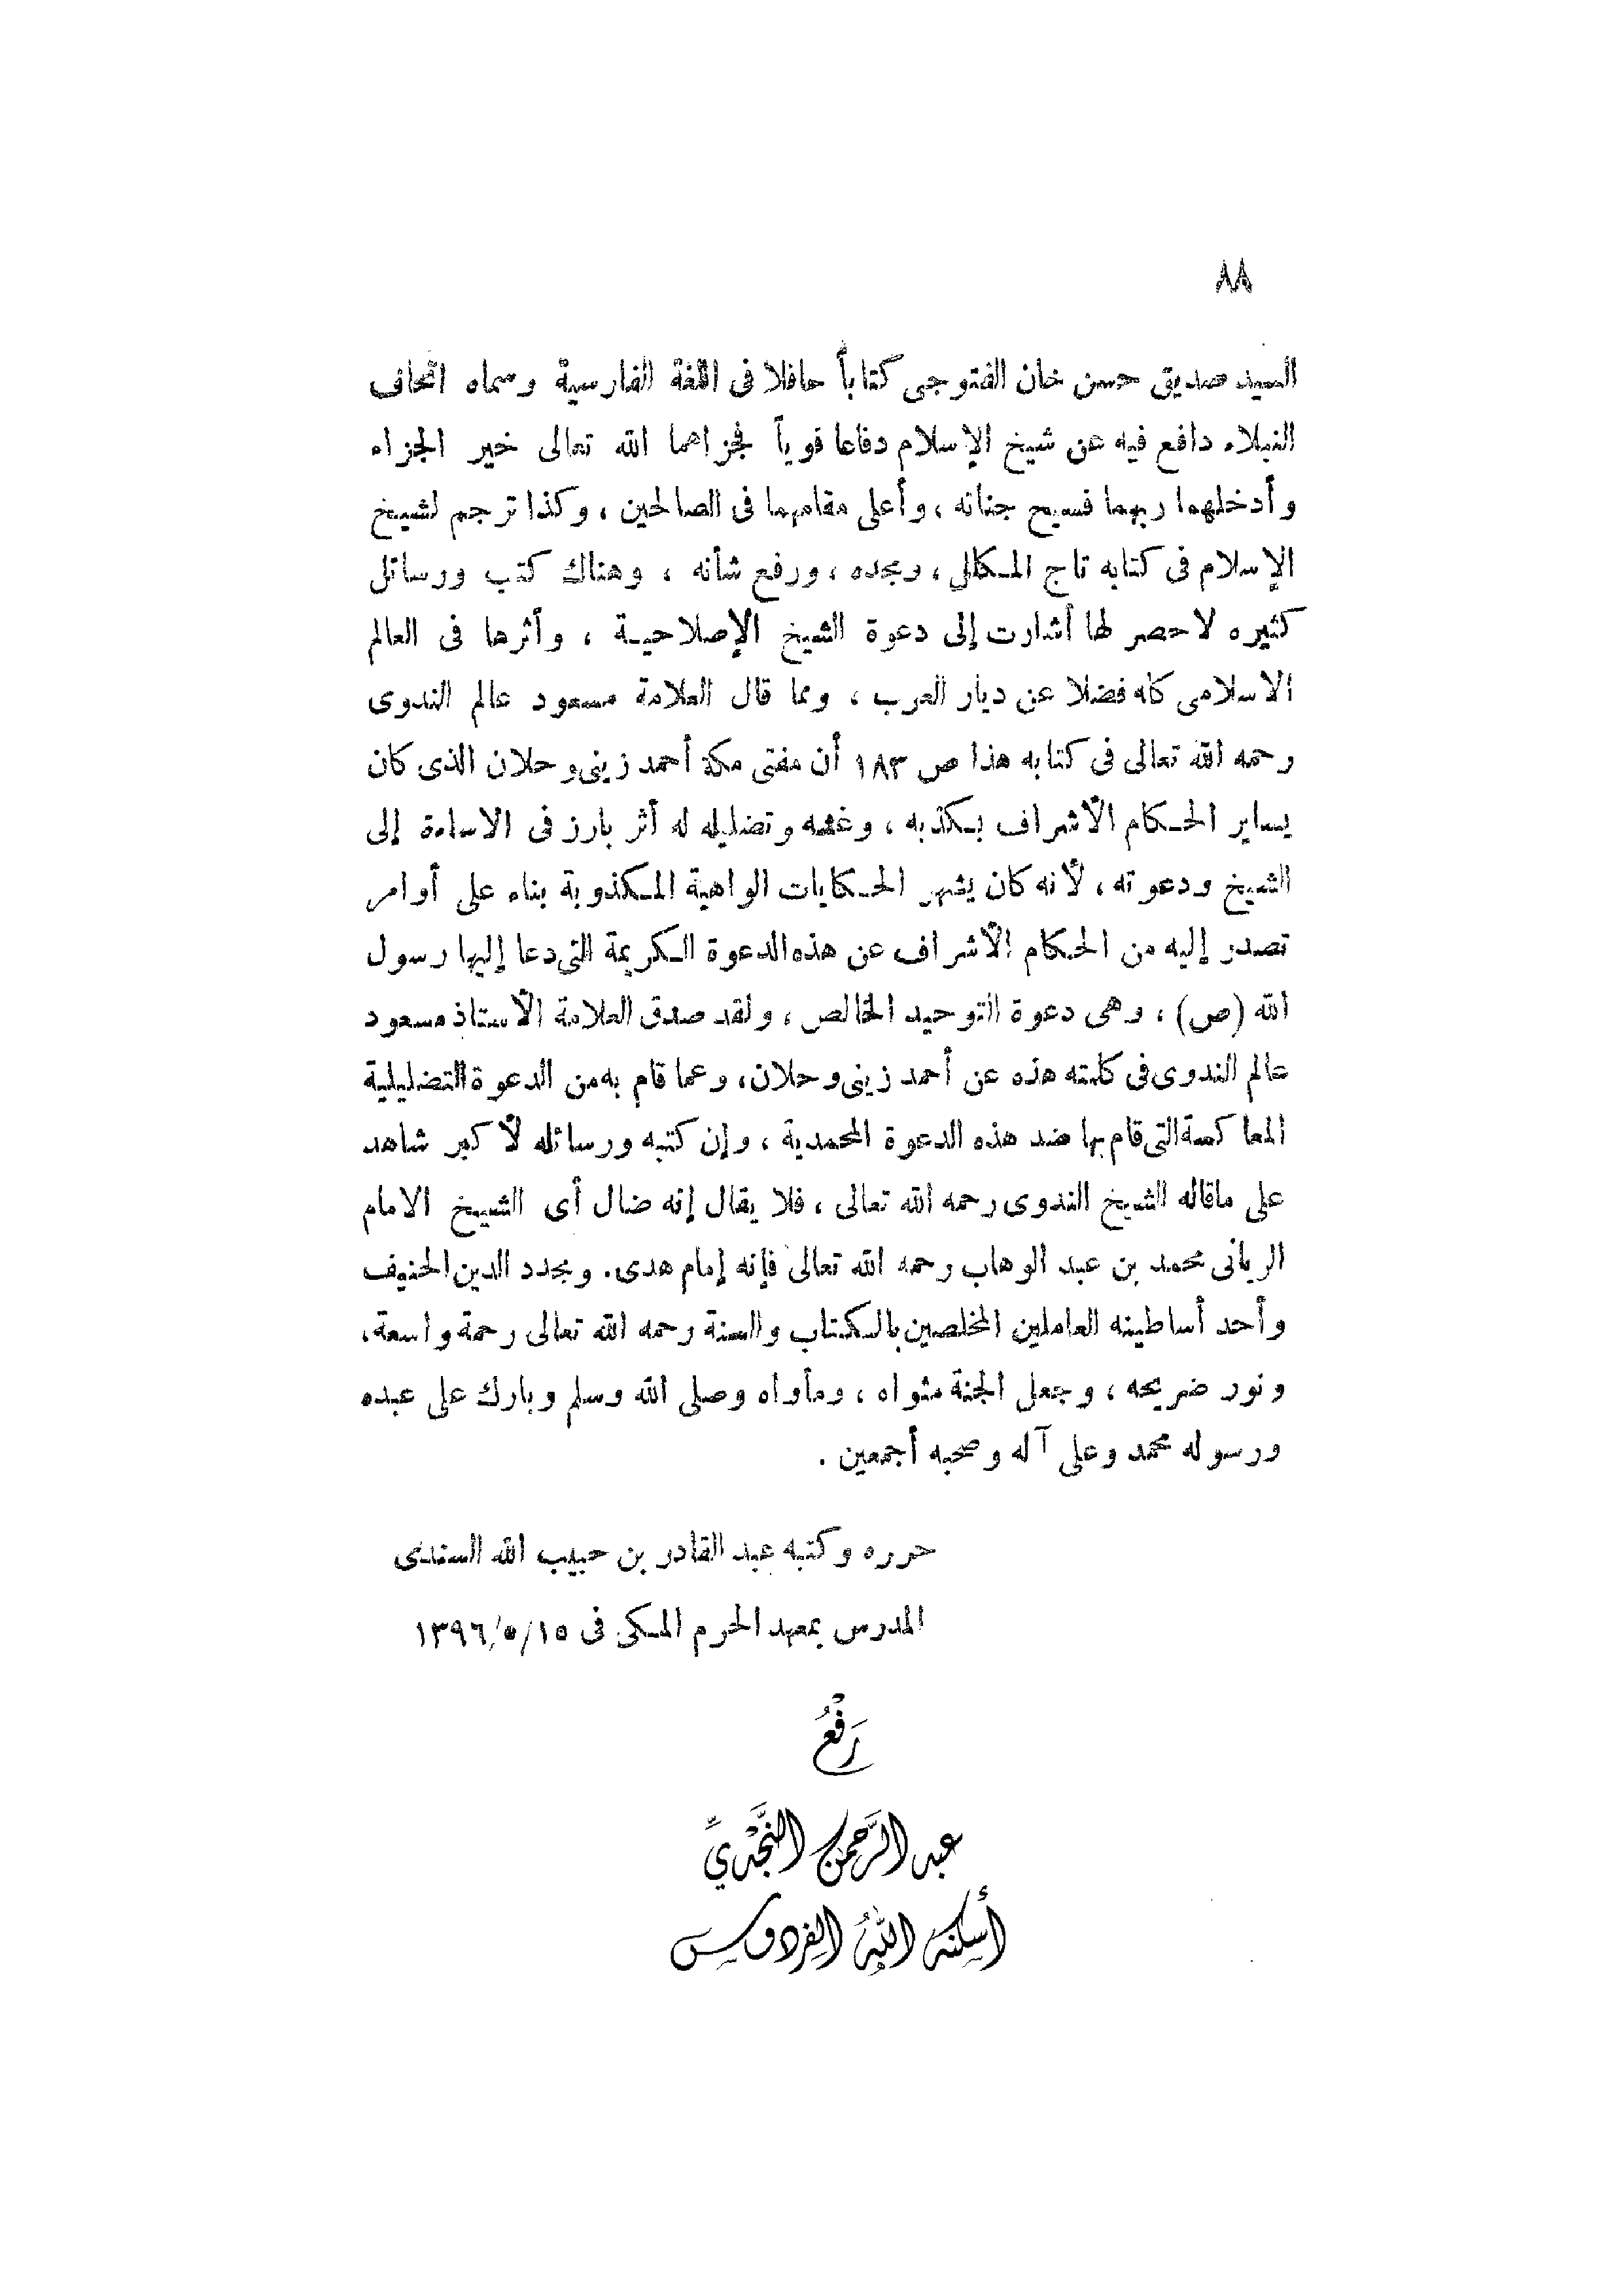 ٨٨
السيد صديق حسن خان الفتوجى كتاباً حافلا فى اللغة الفارسية وسماه اتحاف
النبلاء دافع فيه عن شيخ الإسلام دفاعا قوياً فجزاهما الله تعالى خير الجزاء
وأدخلهما ربهما فسيح جنانه ، وأعلى مقامهما فى الصالحين ، وكذا ترجم لشيخ
الإسلام فى كتابه تاج المكالل ، ومجده ، ورفع شأنه ، وهناك كتب ورسائل
كثيره لا حصر لها أشارت إلى دعوة الشيخ الإصلاحية ، وأثرها فى العالم
الاسلامى كله فضلا عن ديار العرب ، ومما قال العلامة مسعود عالم الندوى
رحمه الله تعالى فى كتابه هذا ص ١٨٣ أن مفتى مكة أحمد زينى وحلان الذى كان
يساير الحكام الأشراف بكذبه ، وغشه وتضليله له أثر بارز فى الاساءة إلى
الشيخ ودعوته ، لأنه كان يشهر الحكايات الواهية المكذوبة بناء على أوامر
تصدر إليه من الحكام الأشراف عن هذه الدعوة الكريمة التى دعا إليها رسول
الله (ص) ، وهى دعوة التوحيد الخالص ، ولقد صدق العلامة الأستاذ مسعود
عالم الندوى فى كلمته هذه عن أحمد زينى وحلان ، وعما قام به من الدعوة التضليلية
المعاكسة التى قام بها ضد هذه الدعوة المحمدية ، وإن كتبه ورسائله لأكبر شاهد
على ماقاله الشيخ الندوى رحمه الله تعالى ، فلا يقال إنه ضال أى الشيخ الامام
الربانى محمد بن عبد الوهاب رحمه الله تعالى فإنه إمام هدى. ومجدد الدين الحنيف
وأحد أساطينه العاملين المخلصين بالكتاب والسنة رحمه الله تعالى رحمة واسعة ،
ونور ضريحه ، وجعل الجنة مثواه ، ومأواه وصلى الله وسلم وبارك على عبده
ورسوله محمد وعلى آله وصحبه أجمعين .
حرره وكتبه عبد القادر بن حبيب الله السندى
المدرس بمعهد الحرم المكى فى ١٣٩٦/٥/١٥
رَفْعُ
عبد الرَّحمن النَّجْدِيِّ
أسكنه اللهُ الفردوس